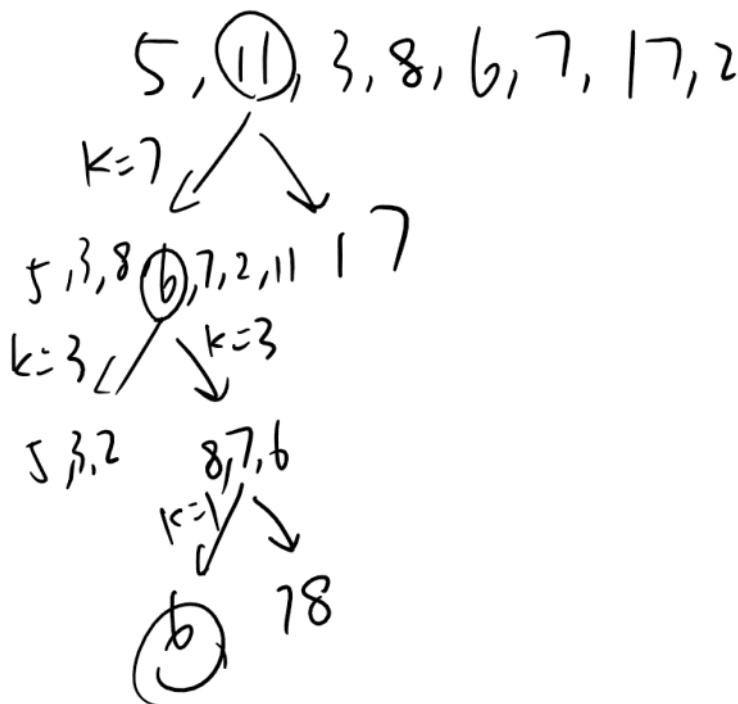 5, 11, 3, 8, 6, 7, 17, 2
k=7
5, 3, 8, 6, 7, 2, 11 17
k=3 k=3
5, 3, 2 8, 7, 6
k=1
6 78